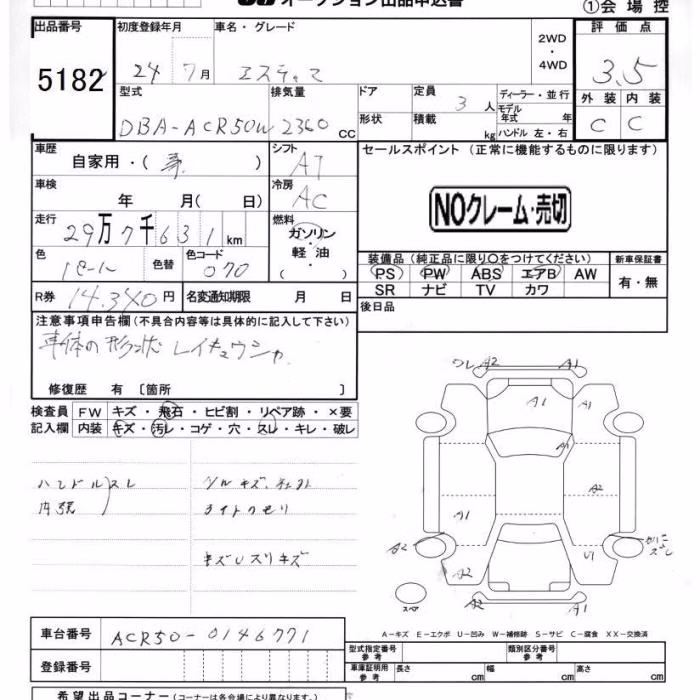 オークション出品申込書
①会場控
出品番号 初度登録年月 車名・グレード 2WD・4WD 評価点
5182 24 7月 エスティマ 3.5
型式 排気量 ドア 定員 3人 ディーラー・並行 外装 内装
DBA-ACR50W 2360cc 形状 積載 kg モデル年式 年 ハンドル 左・右 C C
車歴 自家用・( ) シフト AT セールスポイント (正常に機能するものに限ります)
車検 年 月( 日) 冷房 AC
NOクレーム・売切
走行 29万7千631km 燃料 ガソリン 軽油 ( )
色 パール 色替 色コード 070
装備品(純正品に限り〇をつけてください) 新車保証書
PS PW ABS エアB AW 有・無
SR ナビ TV カワ
R券 14,340円 名変通知期限 月 日 後日品
注意事項申告欄(不具合内容等は具体的に記入して下さい)
レイキュウシャ
修復歴 有〔箇所 〕
検査員記入欄 FW キズ・飛石・ヒビ割・リペア跡・×要
内装 キズ・汚レ・コゲ・穴・スレ・キレ・破レ
ハンドルスレ
内張
ライトクモリ
ワレ A2 A1
A1 A1
A1
A2
A1
A2 U1
A2 A1
スペア
A-キズ E-エクボ U-凹み W-補修跡 S-サビ C-腐食 XX-交換済
車台番号 ACR50-0146771
登録番号
型式指定番号 参考 類別区分番号 参考
車庫証明用 参考 長さ cm 幅 cm 高さ cm
希望出品コーナー(コーナーは各会場により異なります。)